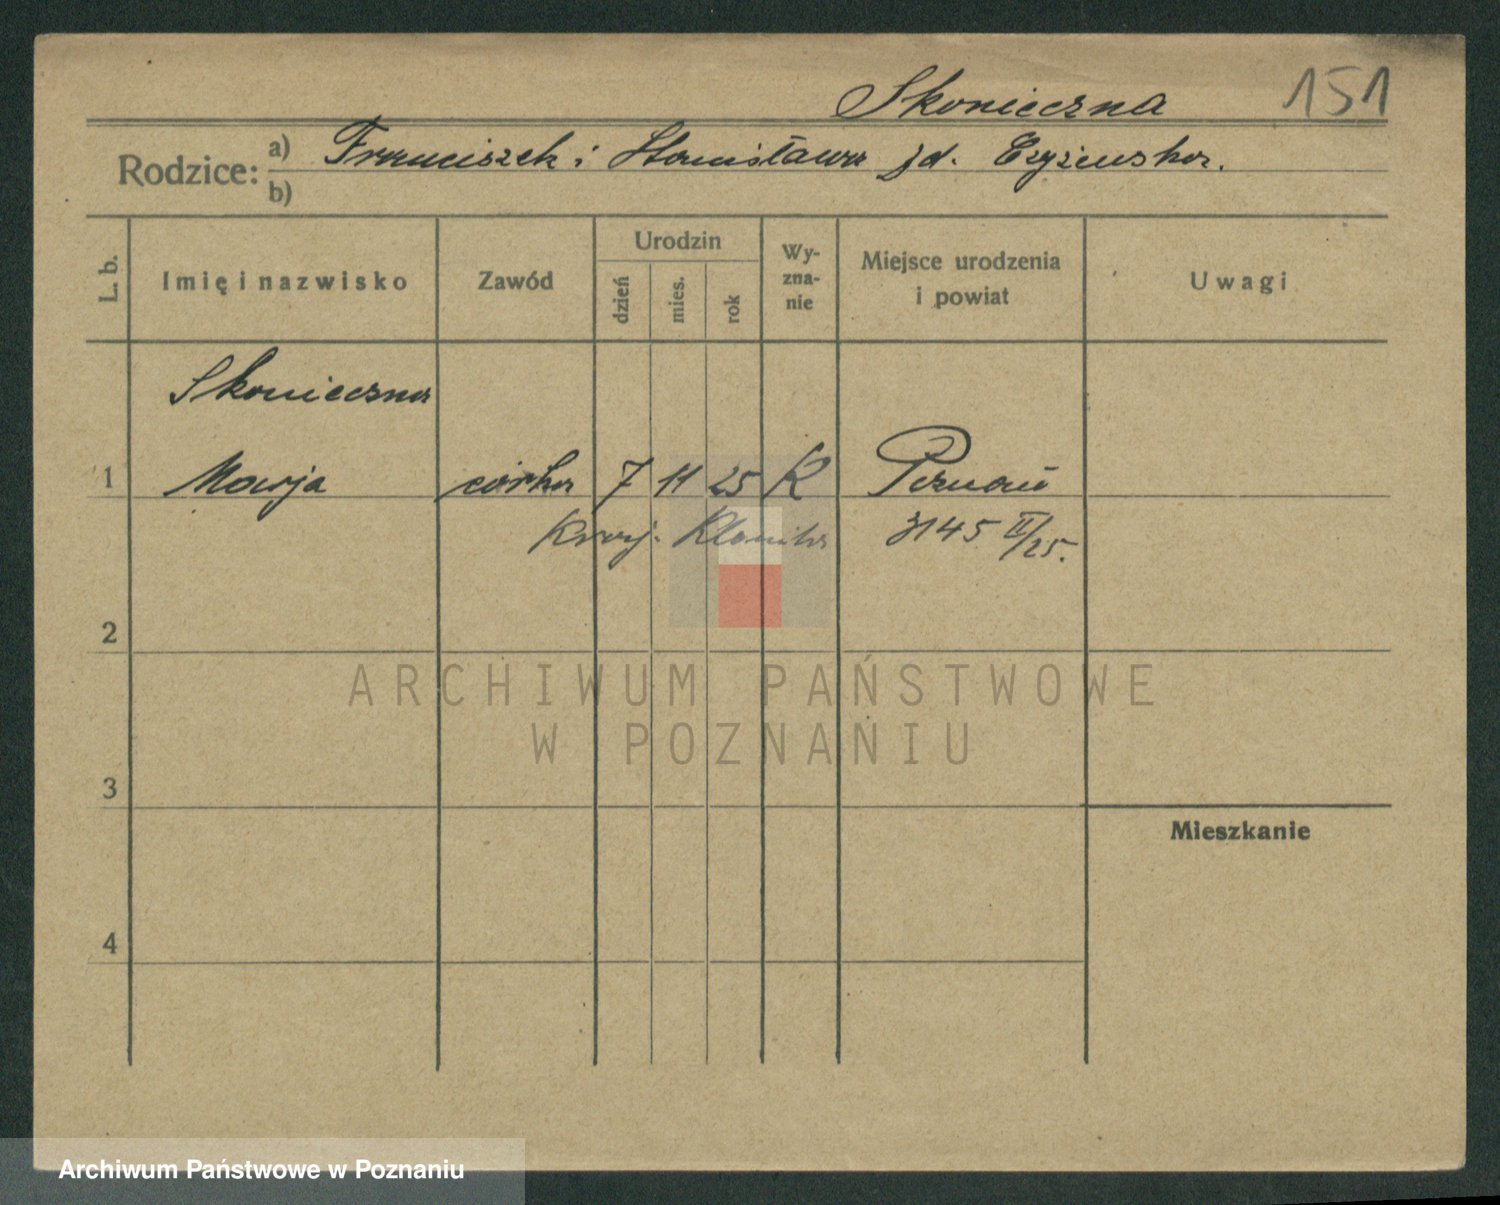 Skonieczna 151
Rodzice: a) Franciszek i Stanisława zd. Czyżewska.
b)
L. b.
Imię i nazwisko
Zawód
Urodzin
dzień
mies.
rok
Wy-
zna-
nie
Miejsce urodzenia
i powiat
Uwagi
Skonieczna
1 Marja córka 7 11 25 K Poznań
3145 II/25.
2
ARCHIWUM PAŃSTWOWE
W POZNANIU
3
Mieszkanie
4
Archiwum Państwowe w Poznaniu